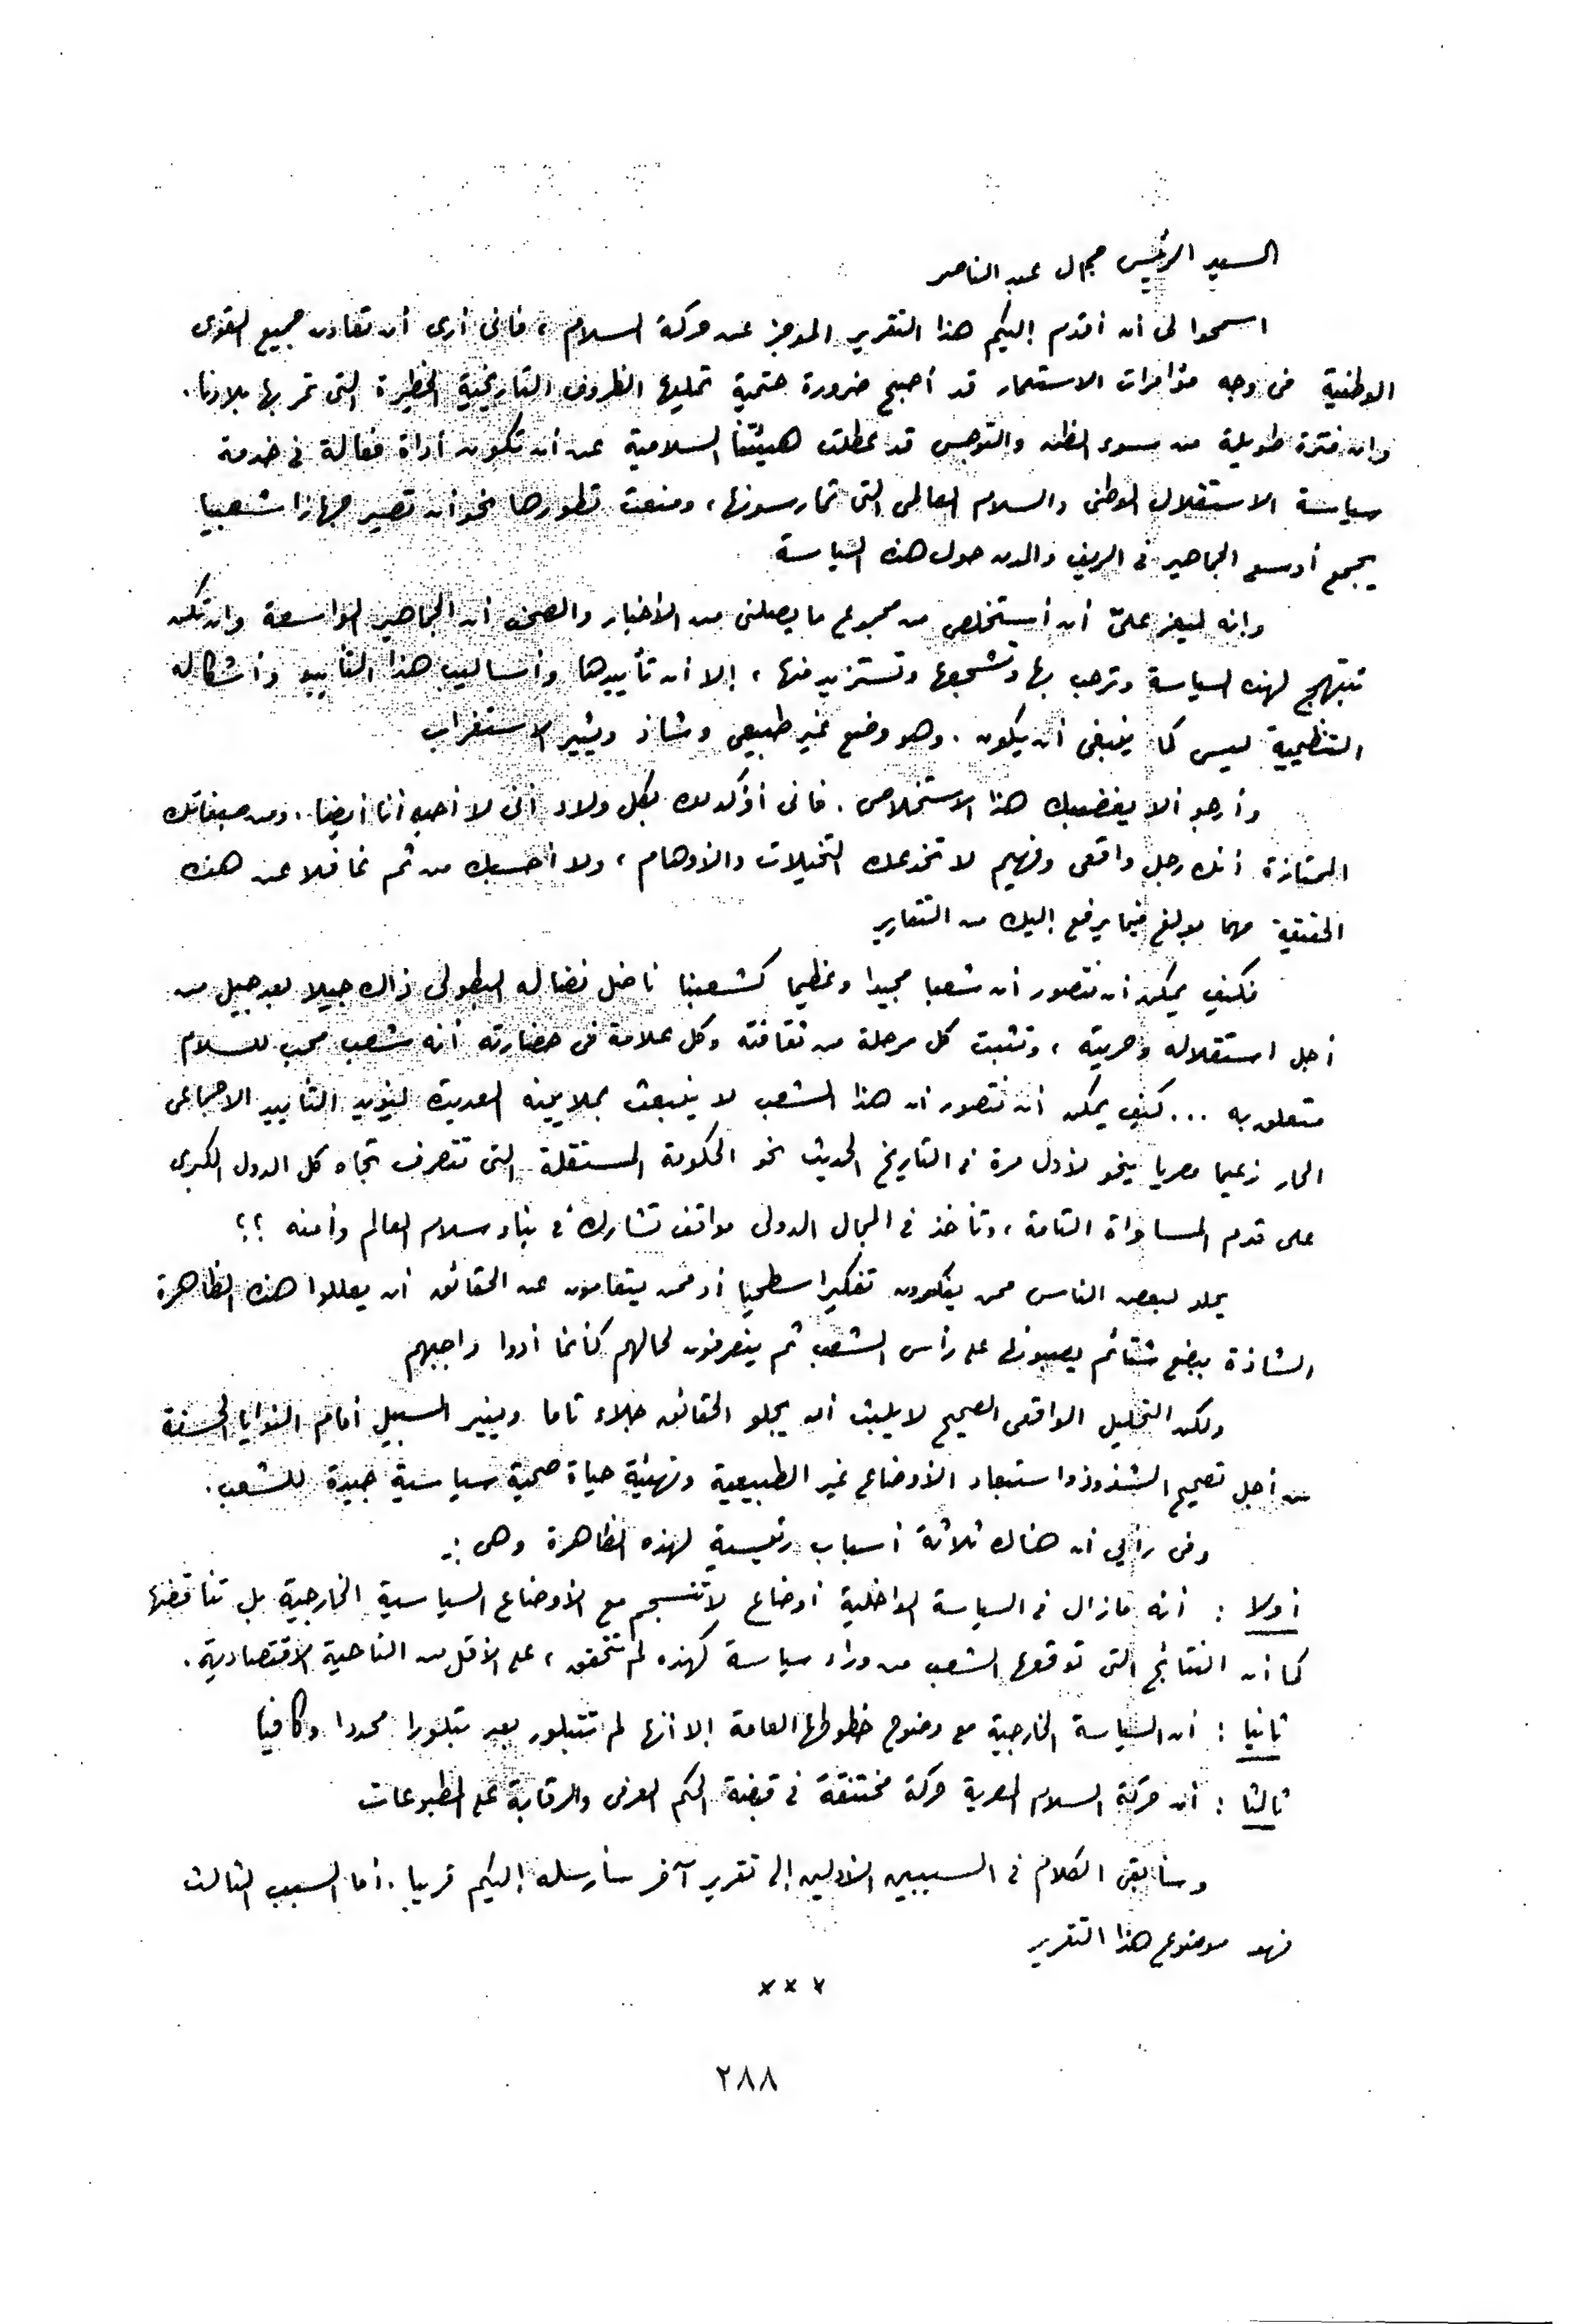 السيد الرئيس جمال عبد الناصر
اسمحوا لى أن أقدم إليكم هذا التقرير الموجز عن حركة السلام ، فانى أرى أن تعاون جميع القوى
الوطنية فى وجه مؤامرات الاستعمار قد أصبح ضرورة حتمية تمليها الظروف التاريخية الخطيرة التى تمر بها بلادنا .
وان فترة طويلة من سوء الظن والتوجس قد عطلت هيئتنا السلامية عن أن تكون أداة فعالة فى خدمة
سياسة الاستقلال الوطنى والسلام العالمى التى تمارسونها ، ومنعت تطورها نحو أن تصير جهازا شعبيا
يجمع أوسع الجماهير فى الريف والمدن حول هذه السياسة
وإنه ليعز علىّ أن أستخلص من مجموع ما يصلنى من الأخبار والصحف أن الجماهير الواسعة وان تكن
تبتهج لهذه السياسة وترحب بها وتشجعها وتستزيد منها ، إلا أن تأييدها وأساليب هذا التأييد وأشكاله
التنظيمية ليس كما ينبغى أن يكون . وهو وضع غير طبيعى وشاذ ويثير الاستغراب
وأرجو ألا يغضبك هذا الاستخلاص . فانى أؤكد لك بكل ولاء أنى لا أحبه أنا أيضا . ومن صفاتك
الممتازة أنك رجل واقعى وفهيم لا تخدعك التخيلات والأوهام ، ولا أحسبك من ثم غافلا عن هذه
الحقيقة مهما بولغ فيما يرفع إليك من التقارير
فكيف يمكن أن نتصور أن شعبا مجيدا وعظيما كشعبنا ناضل نضاله البطولى ذاك جيلا بعد جيل من
أجل استقلاله وحريته ، وتثبت كل مرحلة من ثقافته وكل علامة فى حضارته أنه شعب محب للسلام
متعلق به ... كيف يمكن أن نتصور أن هذا الشعب لا ينبعث بملايينه العديدة ليؤيد التأييد الاجماعى
الحار زعيما مصريا ينحو لأول مرة فى التاريخ الحديث نحو الحكومة المستقلة التى تتصرف تجاه كل الدول الكبرى
على قدم المساواة التامة ، وتأخذ فى المجال الدولى مواقف تشارك فى بناء سلام العالم وأمنه ؟؟
يحلو لبعض الناس ممن يفكرون تفكيرا سطحيا أو ممن يتعامون عن الحقائق أن يعللوا هذه الظاهرة
الشاذة ببضع شتائم يصبونها على رأس الشعب ثم ينصرفون لحالهم كأنما أدوا واجبهم
ولكن التحليل الواقعى الصحيح لا يلبث أن يجلو الحقائق جلاء تاما وينير السبيل أمام النوايا الحسنة
من أجل تصحيح الشذوذ واستبعاد الأوضاع غير الطبيعية وتهيئة حياة صحية سياسية جيدة للشعب .
وفى رأيى أن هناك ثلاثة أسباب رئيسية لهذه الظاهرة وهى :-
أولا : أنه مازال فى السياسة الداخلية أوضاع لا تنسجم مع الأوضاع السياسية الخارجية بل تناقضها
كما أن النتائج التى توقعها الشعب من وراء سياسة كهذه لم تتحقق ، على الأقل من الناحية الاقتصادية .
ثانيا : أن السياسة الخارجية مع وضوح خطوطها العامة إلا أنها لم تتبلور بعد تبلورا محددا وكافيا
ثالثا : أن حركة السلام المصرية حركة مختنقة فى قبضة الحكم العرفى والرقابة على المطبوعات
وسأبقى الكلام فى السببين الأولين إلى تقرير آخر سأرسله إليكم قريبا . أما السبب الثالث
فهو موضوع هذا التقرير
× × ×
٢٨٨